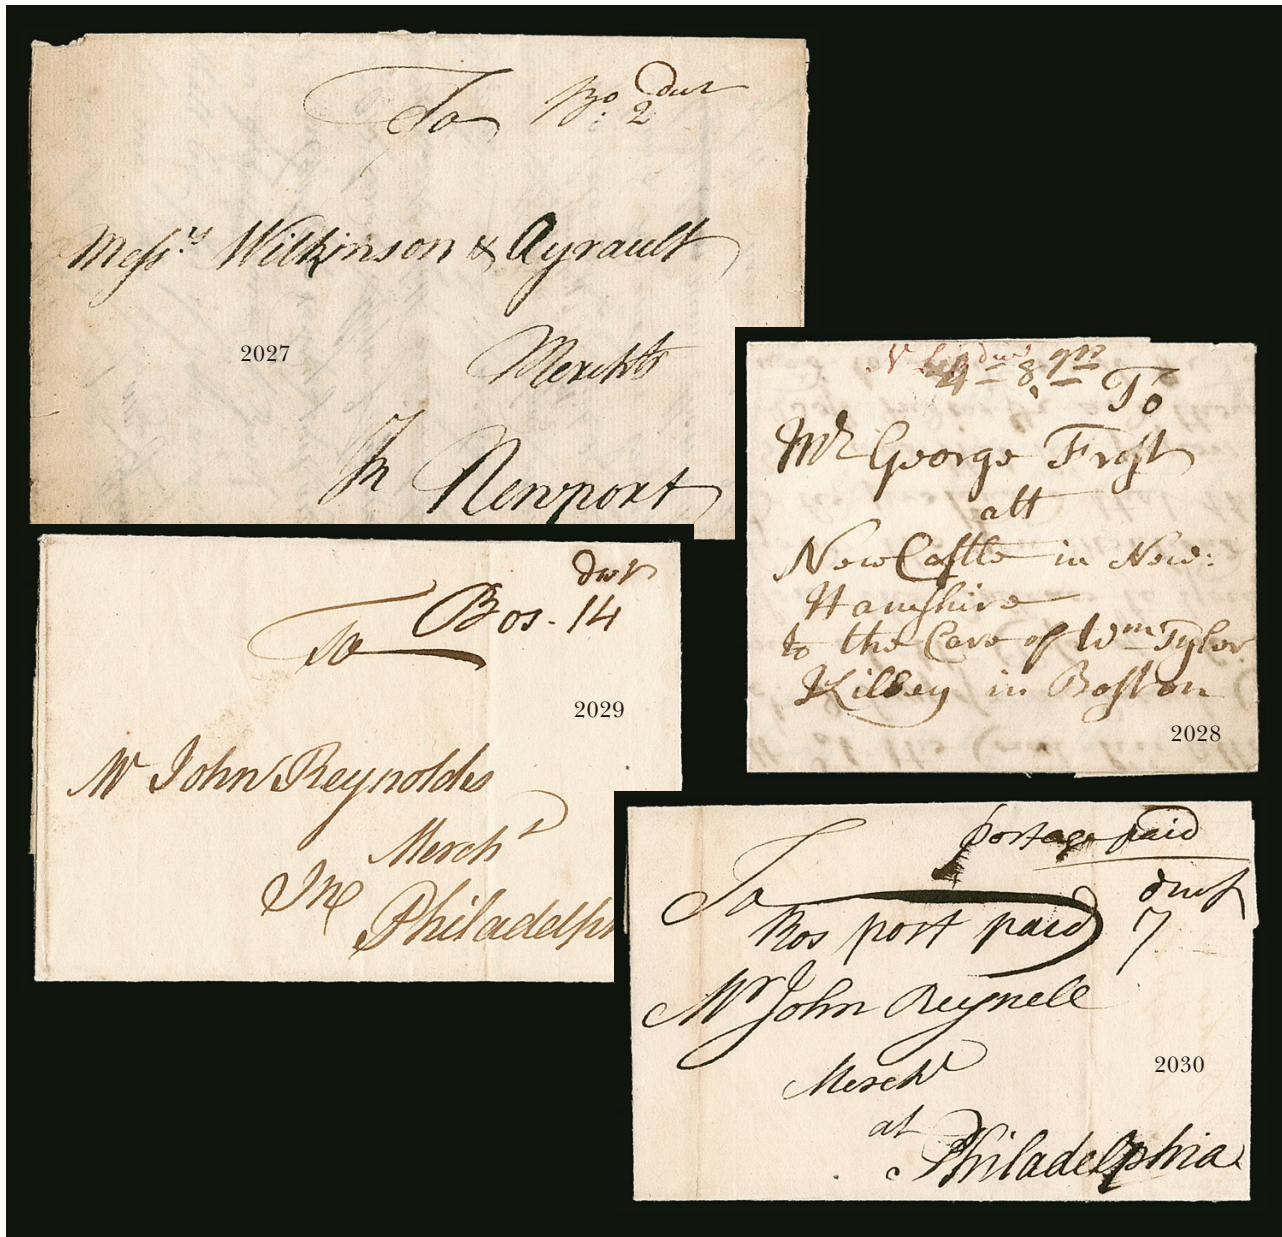 To Bo: 2 dwt
Messrs Wilkinson & Ayrault
Merchts
In Newport
2027
4 8 grs
To
Mr George Frost
att
New Castle in New:
Hamshire
to the Care of Wm Tyler
Kilbey in Boston
2028
dwt
To Bos. 14
2029
Mr John Reynolds
Mercht
In
Philadelph
postage paid
To dwt
Bos post paid 7
Mr John Reynell
2030
Mercht
at
Philadelphia